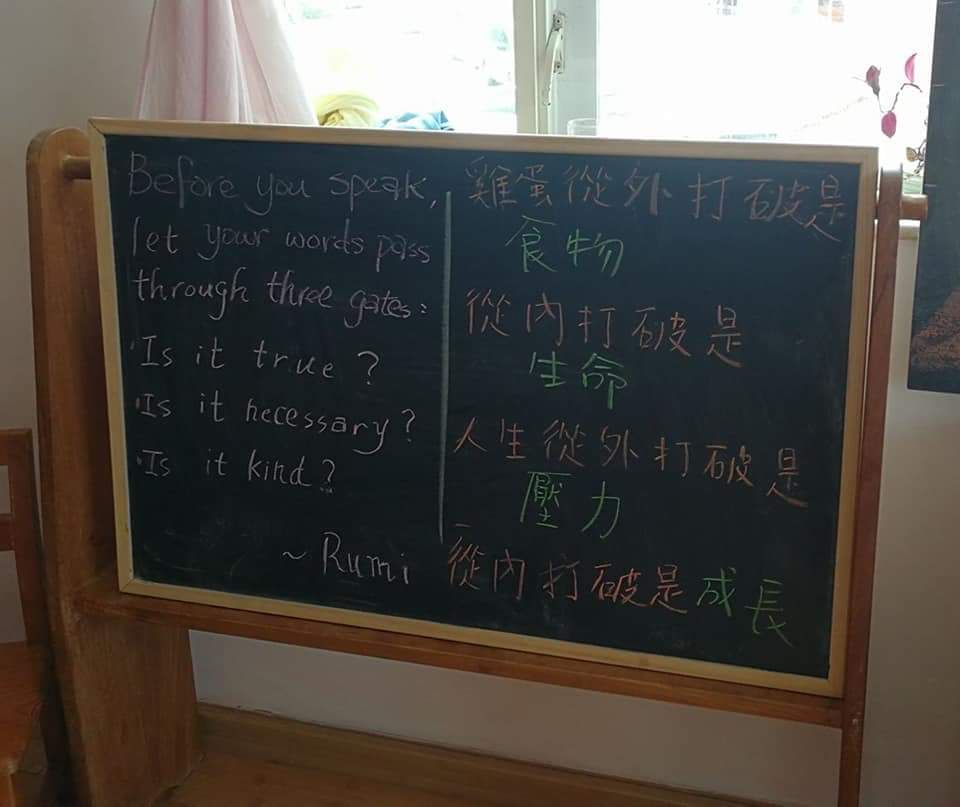 Before you speak,
let your words pass
through three gates:
Is it true?
Is it necessary?
Is it kind?
~ Rumi
雞蛋從外打破是
食物
從內打破是
生命
人生從外打破是
壓力
從內打破是成長